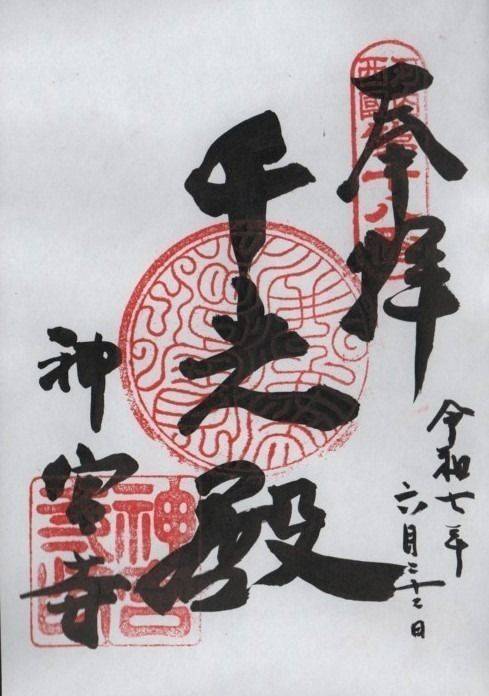 奉拝
千光殿
神宮寺
令和七年
六月二十二日